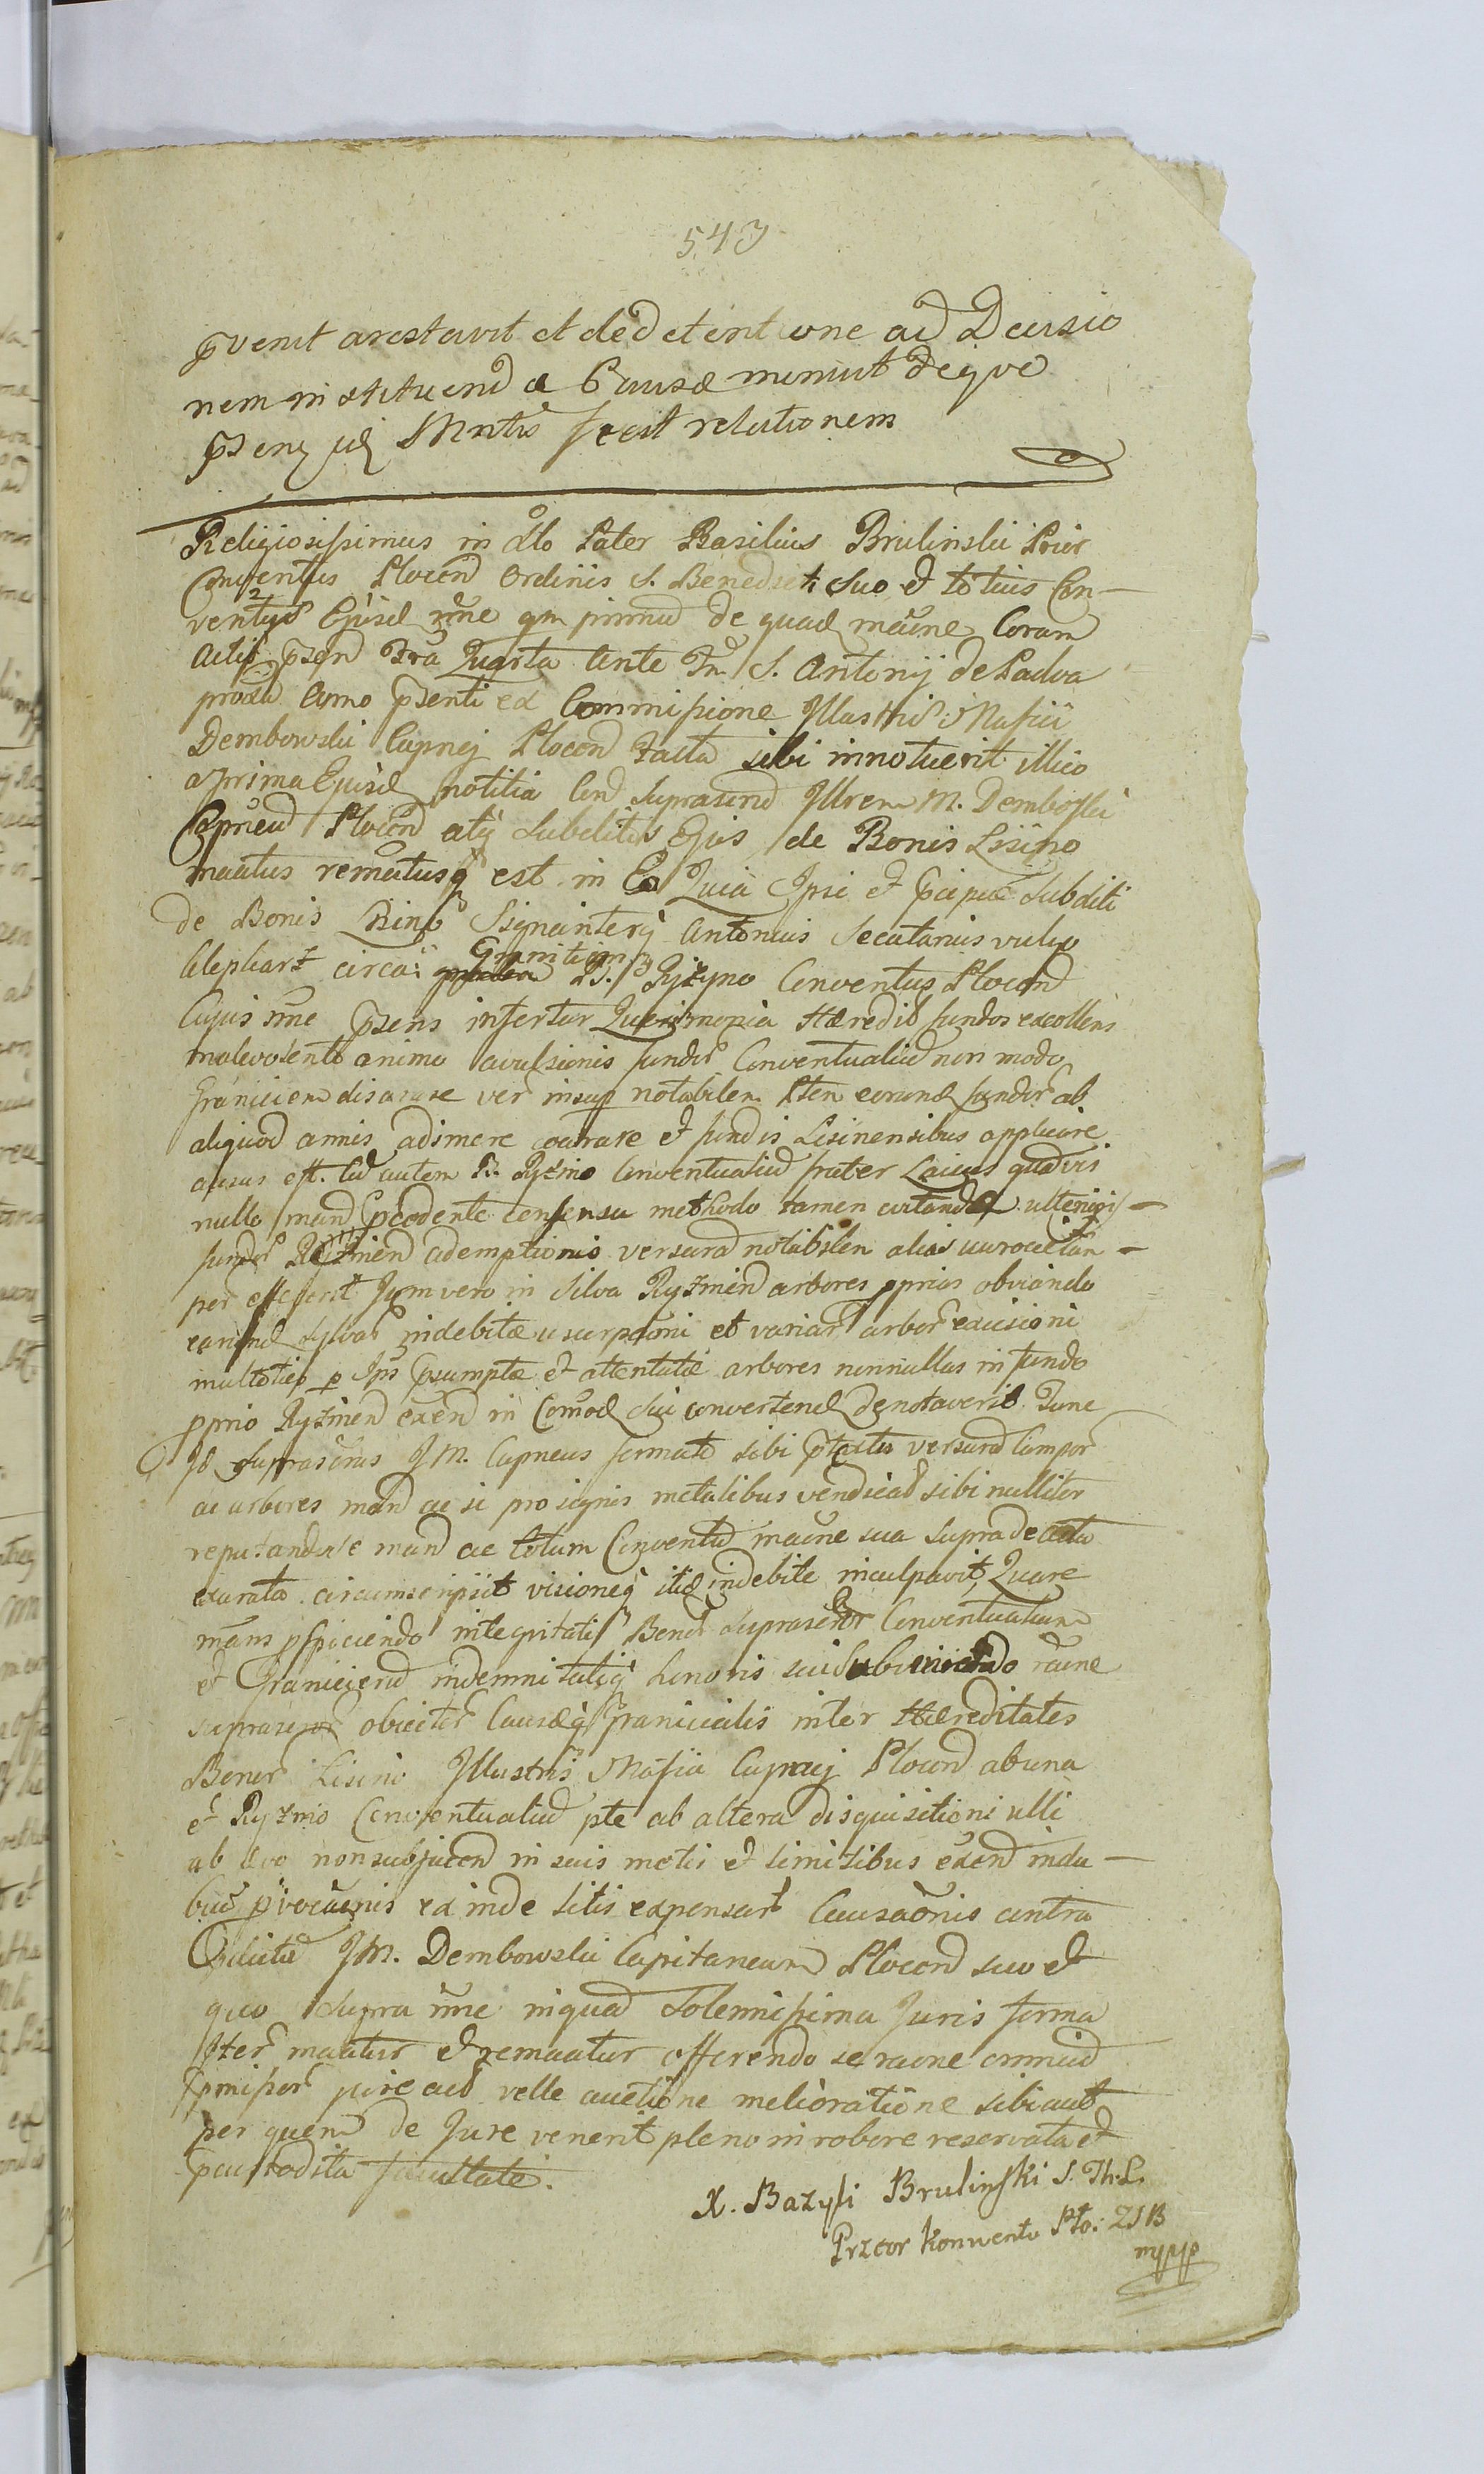 543
pvenit arestavit et de detentione ad Decisio
nem instituend a Causæ muniut deqve
psenq sui Mntio fecit relationem
Religiosissimus in Xto Pater Basilius Brulinski Prior
Conventus Plocen Ordinis S. Benedicti suo et totius Con-
ventus Ejusd nne qm primu de quad mãne Coram
Actis psen Fra Quarta Ante Fm S. Antonij de Padva
proxa Anno psenti ex Commissione Illustris
Dembowski Capnej Plocen Facta sibi innotuerit illico
a prima Ejusd notitia Con suprascrip Illrem M. Demboski
Capneu Plocen atq subditos Ejus de Bonis Lisino
mãtus remãtusq est in Eo Quia Ipsi et pcipue subditi
de Bonis Lisino Signanterq Antonius Secatarius vulgo
circa Granities B. Ryzyno Conventus Plocen
Cujus nne psens infertur Queri Hæredit fundos excollens
malevolente animo avulsionis fundor Conventualiu non modo
Graniciem disarare ver insup notabilem Pten eorund fundor ab
aliquod annis adimere exarare et fundis Lisinensibus applicare
ausus est. Cu autem B. Ryzino Conventualiu frater Laicus quavis
nullo man pcedente consensu methodo tamen evitand ulterioris
fundor Ryzinen ademptionis versura notabilen alias
per effecerit Jam vero in Silva Ryzinen arbores pprias obviando
earund Sylvar indebitæ usurpationi et variar arbor excisioni
multoties p Ips psumptæ et attentatæ arbores nonnullas in fundo
pprio Ryzinen exen in Comod sui convertend denotaverit Tunc
Id suprascrius J M. Capneus formato sibi ptextu versura Campor
ac arbores man ac si pro signis metalibus vendicad sibi nulliter
reputand se man ac totum Conventu mãne sua supra de acta
exarata circumscripsit visioneq ita indebite inculpavit, Quare
mans pspiciendo integritati Bonor suprascrior Conventualium
et Granicieru indemnitatiq honoris sui rãone
suprascrior obiector Causæq Granicialis inter Hæreditates
Bonor Lisino Illustris Mafia Capnej Plocen ab una
et Ryzino Conventualiu pte ab altera disquisitioni ulli
ab ævo non subjacen in suis metis et limitibus exen indu-
bie pvocãonis ex inde litis expensar Causãonis contra
JM. Dembowski Capitaneum Plocen suo et
quo supra nne in quad Solemnissima Juris forma
Iter mãatur et remãatur offerendo se rãone omniu
pmissor jure aut velle auctione melioratione sibi aut
per quem de Jure venerit pleno in robore reservata et
pcustodita facultate.
X. Bazyli Brulinski S. Th. L.
Przeor Konwentu Pło: ZSB
mppp